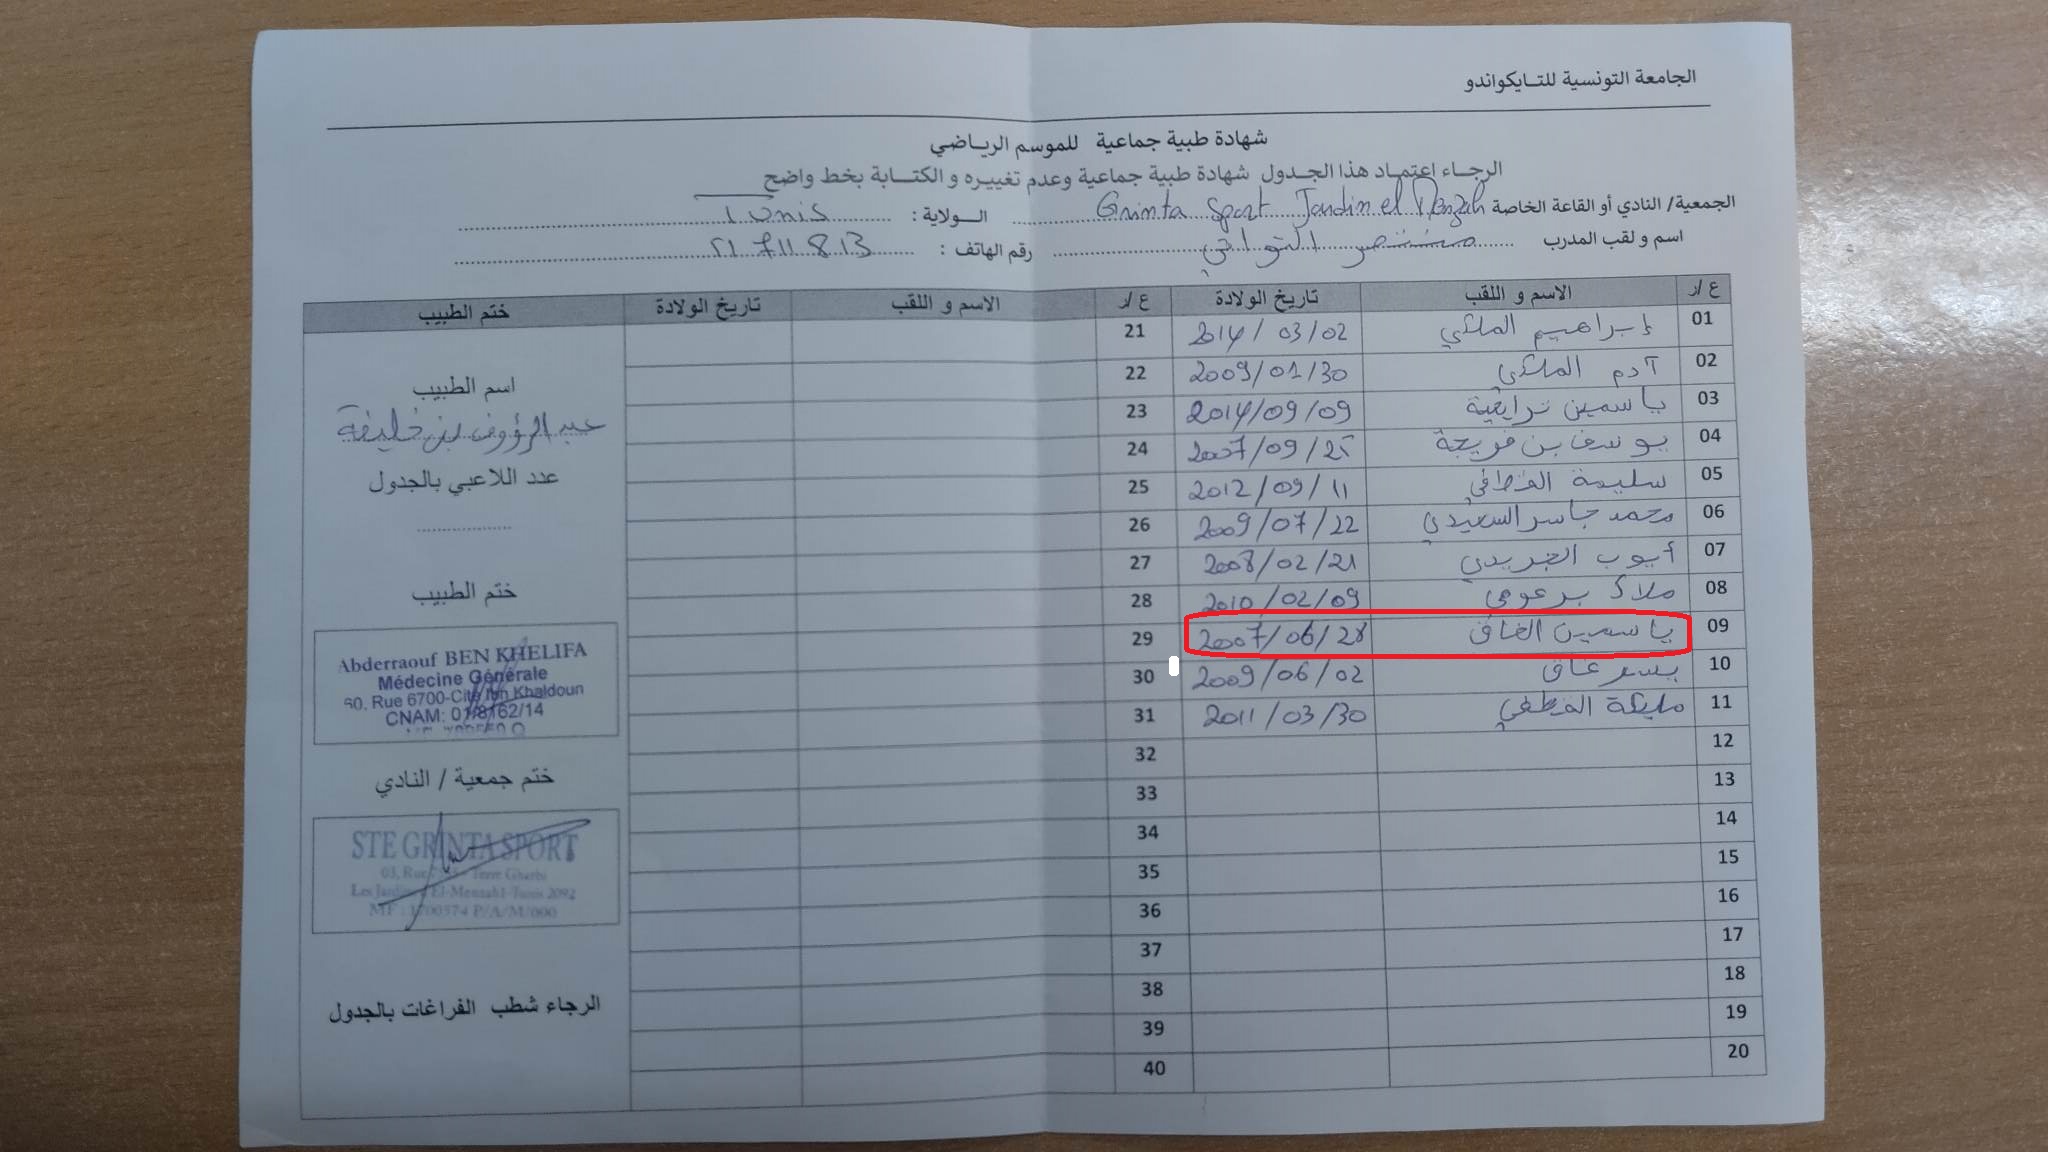 الجامعة التونسية للتايكواندو
شهادة طبية جماعية للموسم الرياضي
الرجاء اعتماد هذا الجدول شهادة طبية جماعية وعدم تغييره و الكتابة بخط واضح
الجمعية/ النادي أو القاعة الخاصة Grinta Sport Jardin el Menzah الولاية : Tunis
اسم و لقب المدرب منتصر التواتي رقم الهاتف : 21 711 813
ع/ر الاسم و اللقب تاريخ الولادة ع/ر الاسم و اللقب تاريخ الولادة ختم الطبيب
01 إبراهيم المكي 2014/03/02 21
02 آدم المكي 2009/01/30 22
03 ياسمين ترايعية 2014/09/09 23
04 يوسف بن فريجة 2007/09/25 24
05 سليمة القطفي 2012/09/11 25
06 محمد جاسر السعيدي 2009/07/22 26
07 أيوب الجريدي 2008/02/21 27
08 ملاك برعومي 2010/02/09 28
09 ياسمين الغاق 2007/06/28 29
10 يسر غاق 2009/06/02 30
11 مليكة القطفي 2011/03/30 31
12 32
13 33
14 34
15 35
16 36
17 37
18 38
19 39
20 40
اسم الطبيب
عبد الرؤوف بن خليفة
عدد اللاعبي بالجدول
ختم الطبيب
Abderraouf BEN KHELIFA
Médecine Générale
60, Rue 6700-Cité Ibn Khaldoun
CNAM: 01/8162/14
ختم جمعية / النادي
STE GRINTA SPORT
03, Rue Terre Gharbi
Les Jardins El-Menzah1-Tunis 2092
MF : 1700574 P/A/M/000
الرجاء شطب الفراغات بالجدول